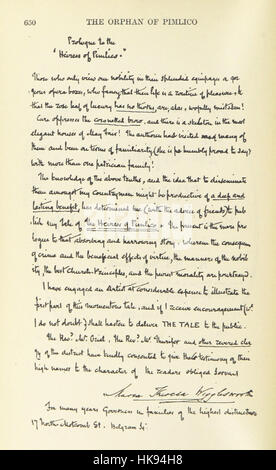 650
THE ORPHAN OF PIMLICO
Prologue to the
"Heiress of Pimlico."
Those who only view our nobility in their splendid equipages or gor-
geous opera boxes, who fancy that their life is a routine of pleasure &
that the rose leaf of luxury has no thorns, are, alas, woefully mistaken!
Care oppresses the coronetted brow, and there is a skeleton in the most
elegant houses of May Fair! The authoress had visited many of
them and been on terms of familiarity (she is humbly proud to say)
with more than one patrician family!
The knowledge of the above truths, and the idea that to disseminate
them amongst my countrymen might be productive of a deep and
lasting benefit, has determined me (with the advice of friends) to pub-
lish my tale of the Heiress of Pimlico. The present is the mere pro-
logue to that absorbing and harrowing story, wherein the consequences
of crime and the beneficial effects of virtue, the manners of the nobil-
ity, the best Church Principles, and the purest morality are pourtrayed.
I have engaged an Artist at considerable expense to illustrate the
first part of this momentous tale, and if I receive encouragement (wh.
I do not doubt) shall hasten to deliver THE TALE to the public.
The Revd. Mr. Oriel, The Revd. Mr. Thurifer and other revered cler-
gy of the district have kindly consented to give the testimony of their
high names to the character of the readers obliged Servant
Maria Theresa Wigglesworth
For many years Governess in families of the highest distinction
17 North Motcomb St. Belgrave Sq.
alamy
HK94H8